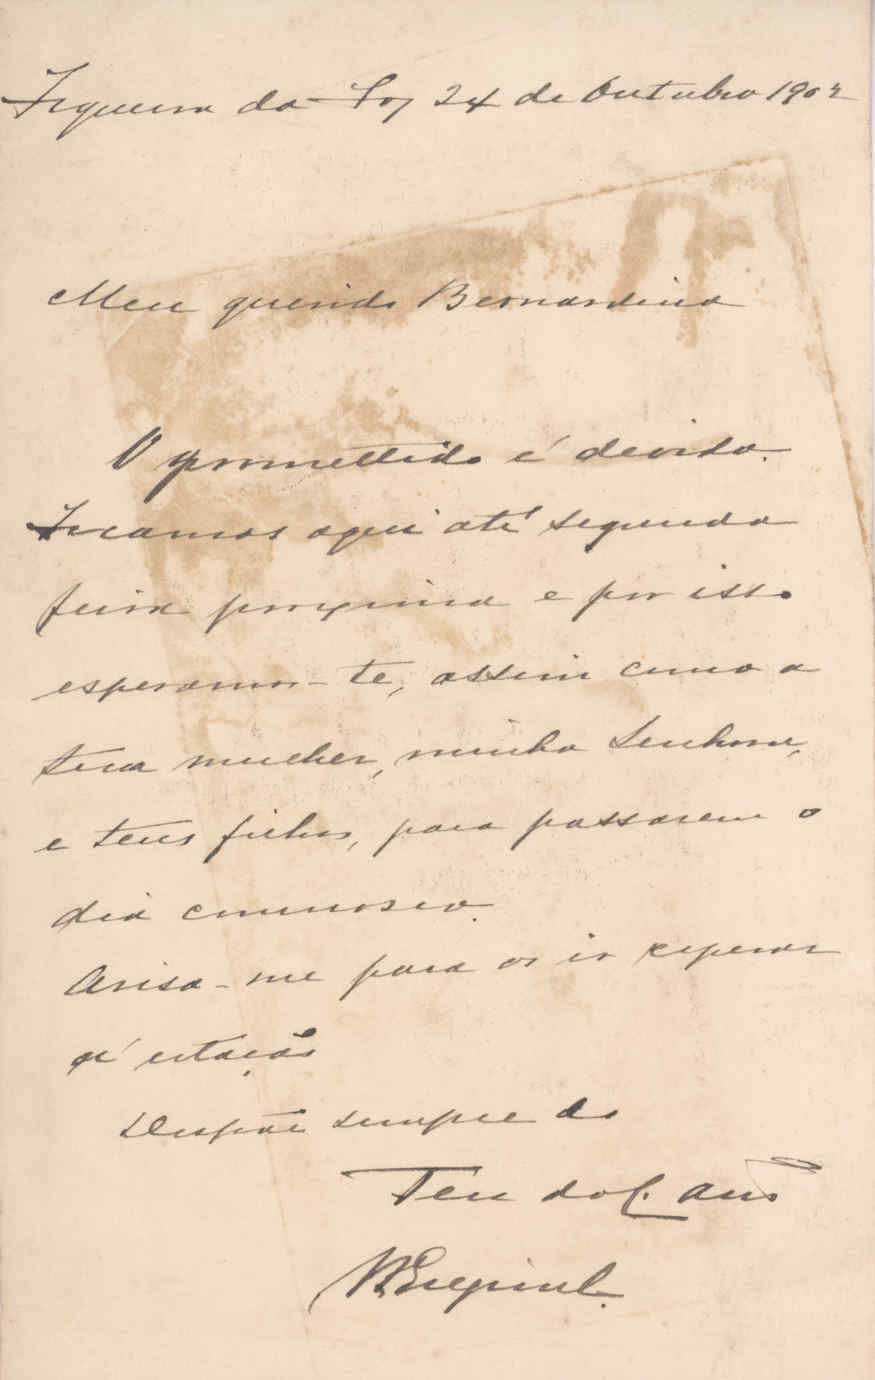 Figueira da Foz 24 de Outubro 1902
Meu querido Bernardino
O promettido é devido.
Ficamos aqui até segunda
feira proxima e por isso
esperamos-te, assim como a
tua mulher, minha Senhora,
e teus filhos, para passarem o
dia comnosco.
Avisa-me para os ir esperar
á estação
Dispõe sempre do
Teu do C.